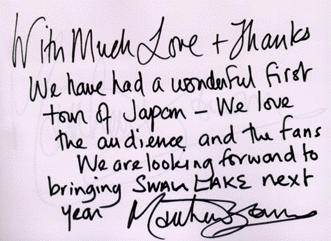 With Much Love + Thanks
We have had a wonderful first
tour of Japan - We love
the audience and the fans
We are looking forward to
bringing SWAN LAKE next
year Matthew Bourne